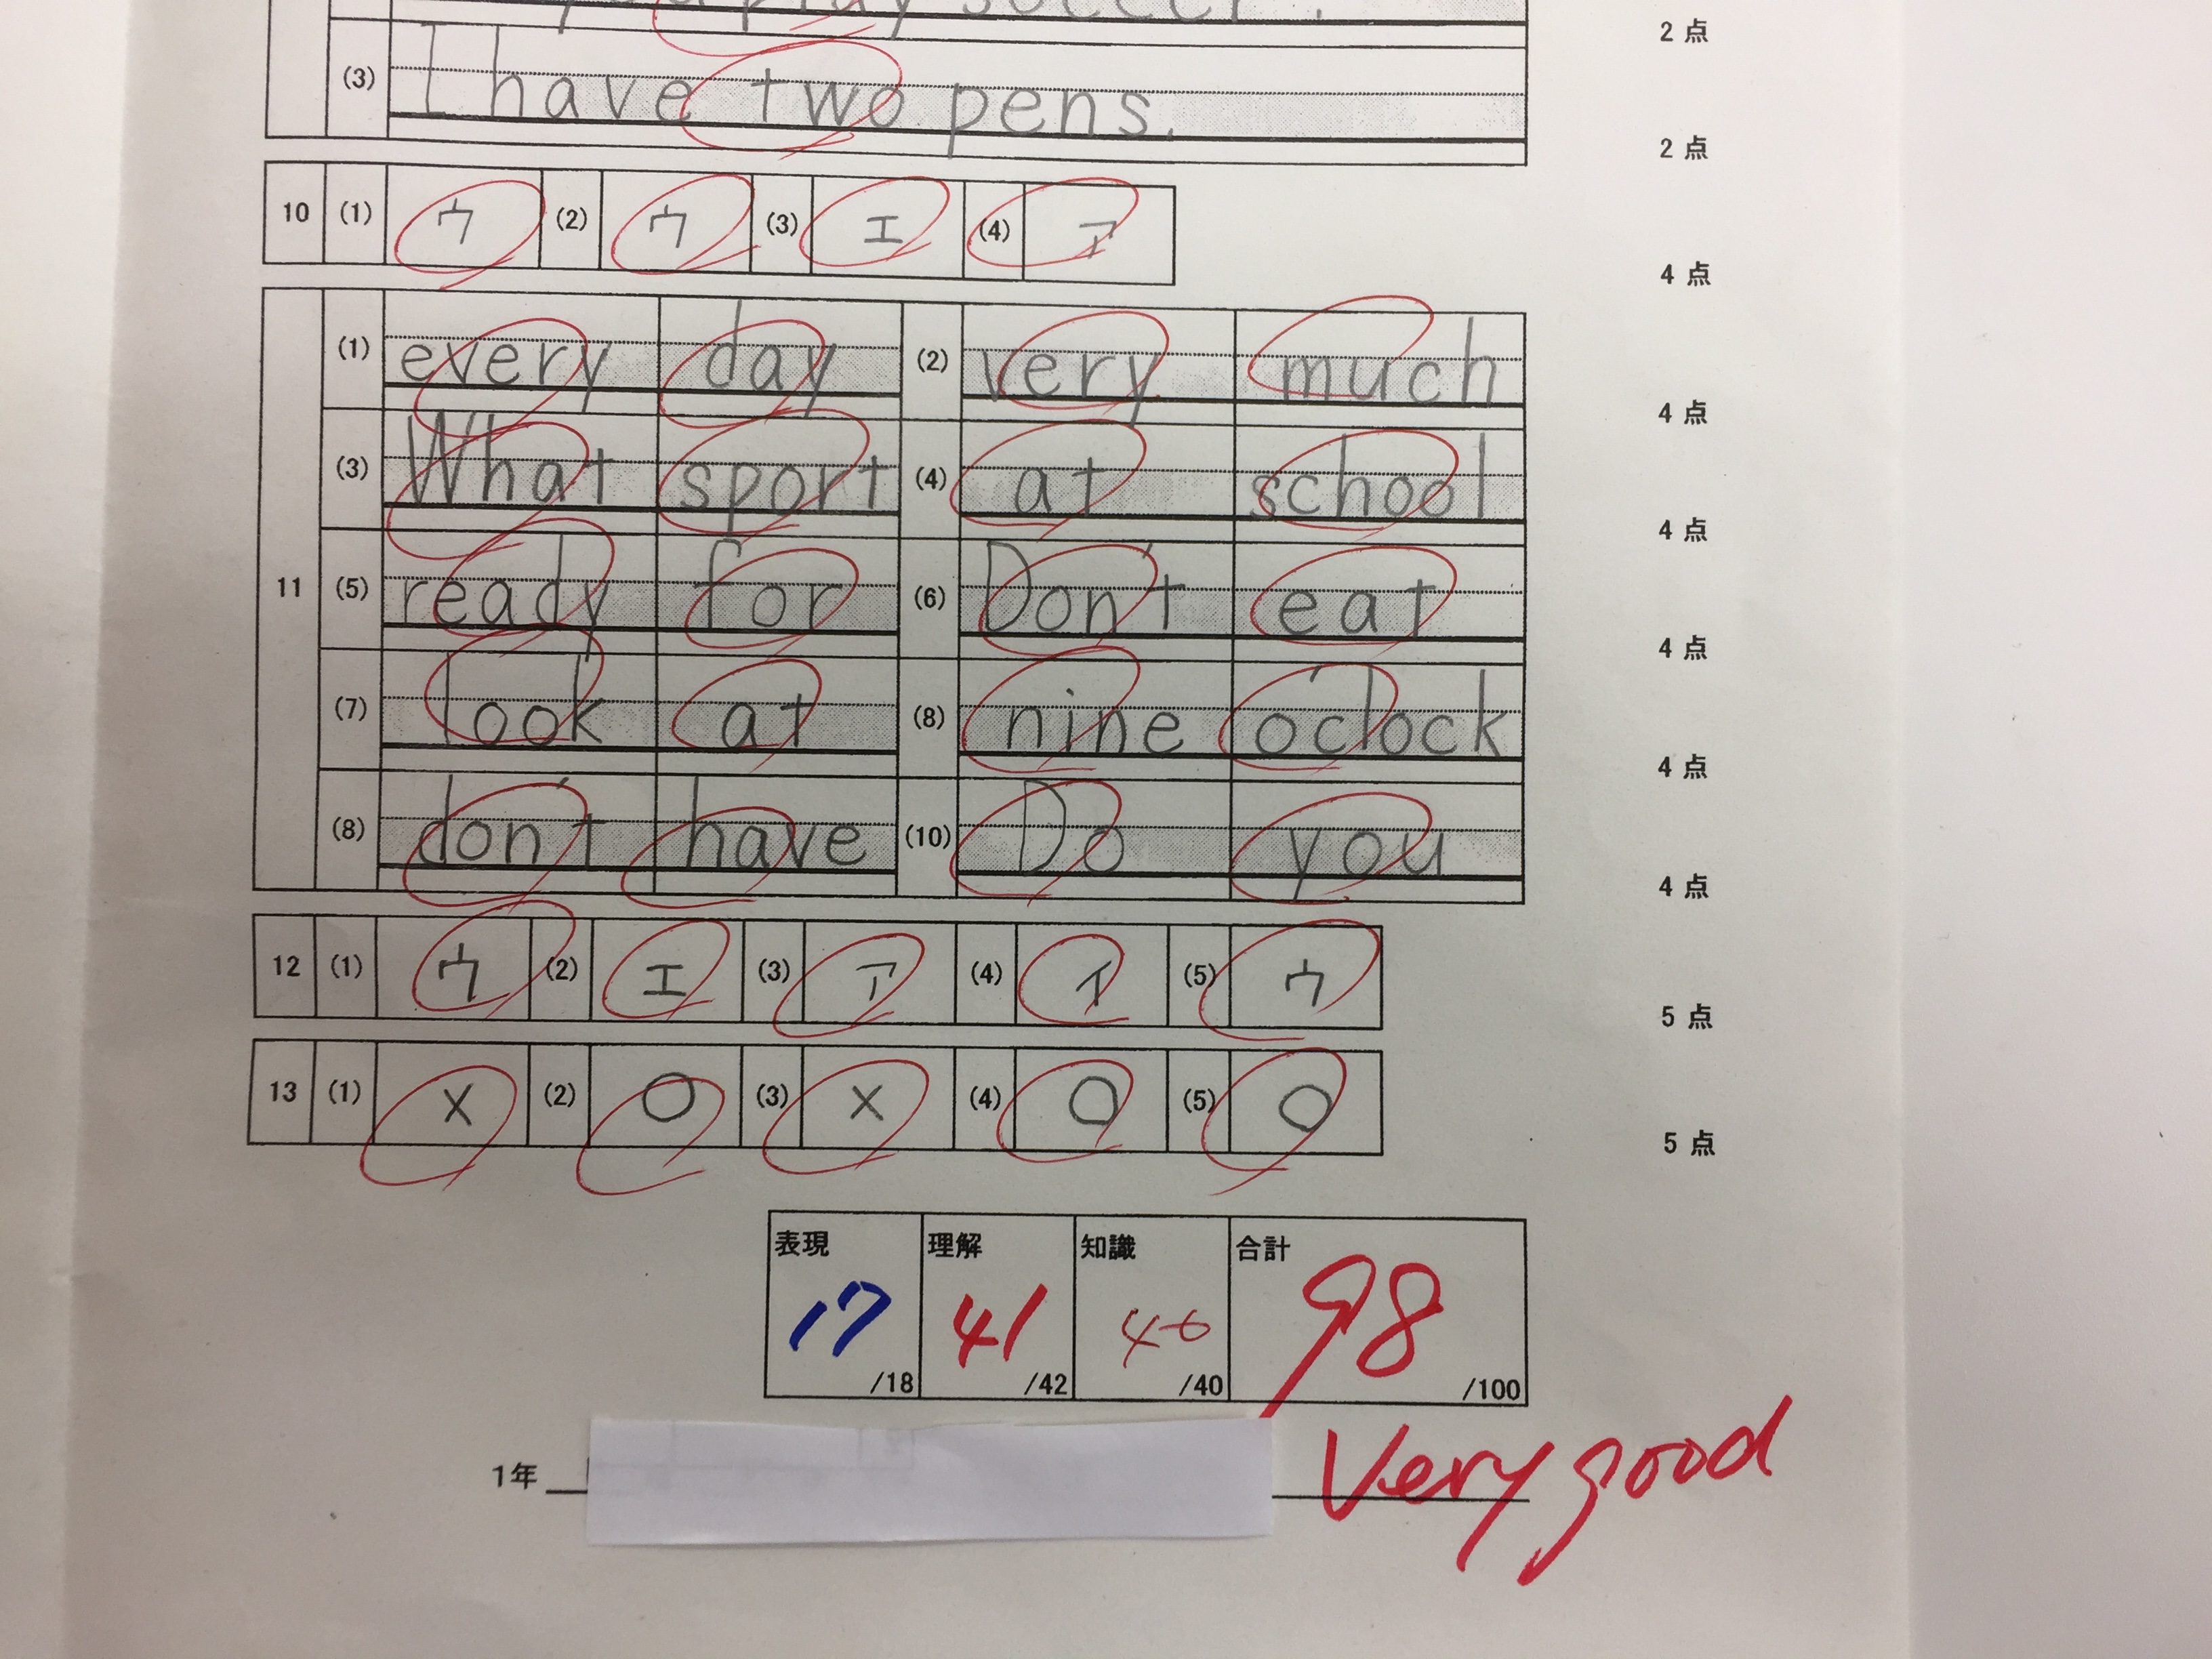 play soccer.
2点
(3) I have two pens.
2点
10 (1) ウ (2) ウ (3) エ (4) ア
4点
(1) every day (2) very much
4点
(3) What sport (4) at school
4点
11 (5) ready for (6) Don't eat
4点
(7) look at (8) nine o'clock
4点
(8) don't have (10) Do you
4点
12 (1) ウ (2) エ (3) ア (4) イ (5) ウ
5点
13 (1) × (2) ○ (3) × (4) ○ (5) ○
5点
表現 理解 知識 合計
17 41 40 98
/18 /42 /40 /100
1年
Very good